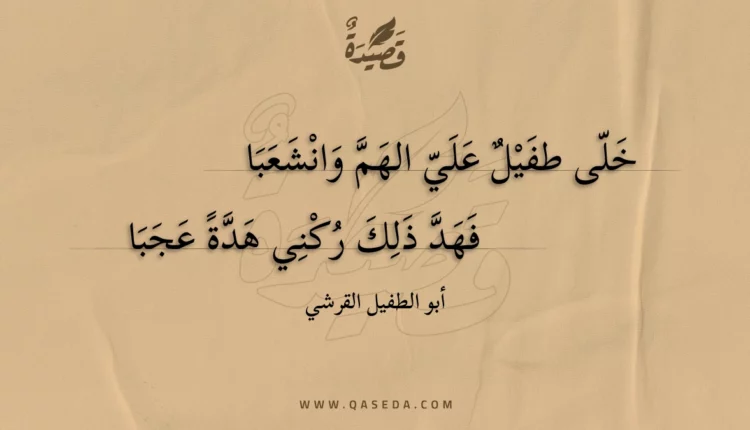 قَصِيدَةٌ
خَلّى طفَيْلٌ عَلَيّ الهَمَّ وَانْشَعَبَا
فَهَدَّ ذَلِكَ رُكْنِي هَدَّةً عَجَبَا
أبو الطفيل القرشي
WWW.QASEDA.COM